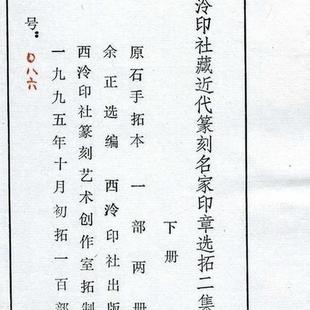 泠印社藏近代篆刻名家印章选拓二集
下册
原石手拓本 一部两册
余正选编 西泠印社出版
西泠印社篆刻艺术创作室拓制
一九九五年十月初拓一百部
号：〇八六